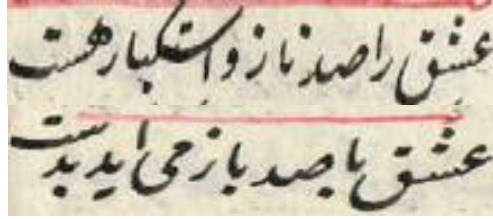 عشق را صد ناز و استکبار هست
عشق با صد ناز می آید بدست